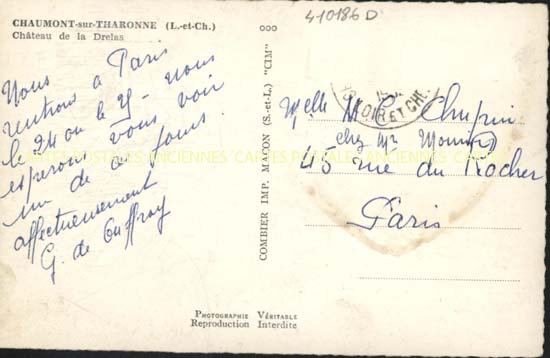 CHAUMONT-sur-THARONNE (L.-et-Ch.)
Château de la Drelas
410186 D
Nous
rentrons à Paris
le 24 ou le 25 - nous
esperons vous voir
un de ces jours
affectueusement
G. de
COMBIER IMP. MACON (S.-et-L.) "CIM"
LOIR ET CHER
Melle M. L. Chupin
chez Mr
45 rue du Rocher
Paris
CARTES POSTALES ANCIENNES CARTES POSTALES ANCIENNES
PHOTOGRAPHIE VÉRITABLE
Reproduction Interdite